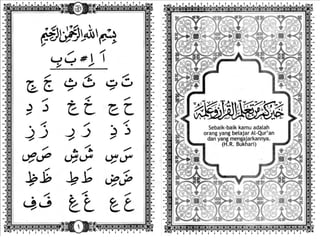 بِسْمِ اللهِ الرَّحْمٰنِ الرَّحِيْمِ
اَ اِ بَ بِ
تَ تِ ثَ ثِ جَ جِ
حَ حِ خَ خِ دَ دِ
ذَ ذِ رَ رِ زَ زِ
سَ سِ شَ شِ صَ صِ
ضَ ضِ طَ طِ ظَ ظِ
عَ عِ غَ غِ فَ فِ
١
خَيْرُكُمْ مَنْ تَعَلَّمَ الْقُرْآنَ وَعَلَّمَهُ
Sebaik-baik kamu adalah
orang yang belajar Al-Qur'an
dan yang mengajarkannya.
(H.R. Bukhari)